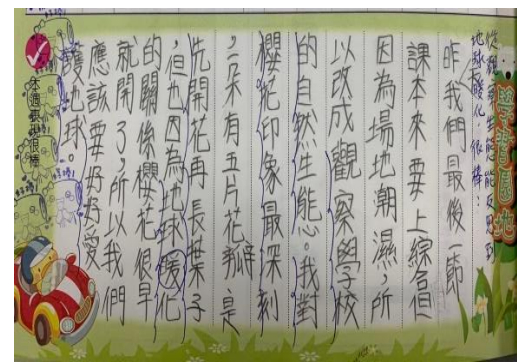 學習園地
從觀察生態能反思到
地球暖化，很棒！
昨天我們最後一節
課本來要上綜合但
因為場地潮濕，所
以改成觀察學校
的自然生態。我對
櫻花印象最深刻
，一朵有五片花瓣，是
先開花再長葉子
，但也因為地球暖化
的關係櫻花很早
就開了，所以我們
應該要好好愛
護地球。
本週表現很棒